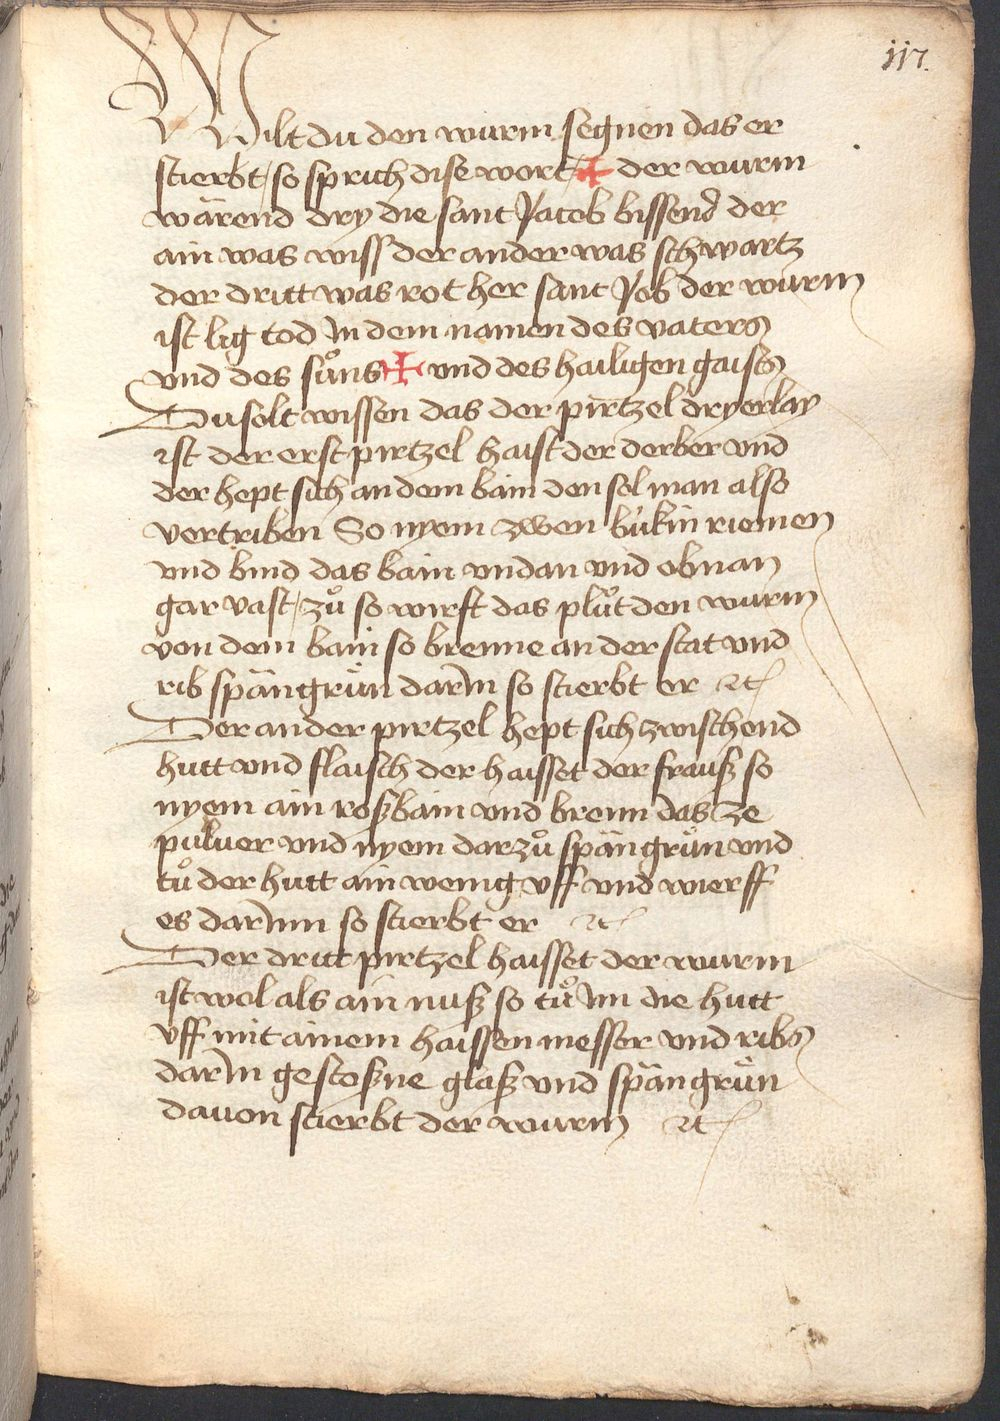 117.
Wilt du den wurm segnen das er
stierbt / so sprich dise wort / ✠ der wurm
wärend dry die sant Jacob bissend der
ain was wiss der ander was schwartz
der dritt was rot her sant Job der wurm
ist lig tod In dem namen des vaters
vnd des sůns ✠ vnd des hailigen gaists
Du solt wissen das der pirtzel dryerlay
ist der erst pirtzel haist der derber vnd
der hept sich an dem bain den sol man also
vertriben So nyem zwen bükin riemen
vnd bind das bain vndan vnd obnan
gar vast / zů so wirft das plůt den wurm
von dem bain so brenne an der stat vnd
rib spängrün darIn so stierbt er ꝛc
Der ander pirtzel hept sich zwischend
hutt vnd flaisch der haisset der frauß so
nyem ain roßbain vnd brenn das ze
puluer vnd nyem darzů spängrün vnd
tů der hutt ain wenig vff vnd wierff
es darInn so stierbt er ꝛc
Der dritt pirtzel haisset der wurm
ist wol als ain nuß so tů Im die hutt
vff mit ainem haissen messer vnd ribs
darIn gestoßne glaß vnd spängrün
dauon stierbt der wurm ꝛc